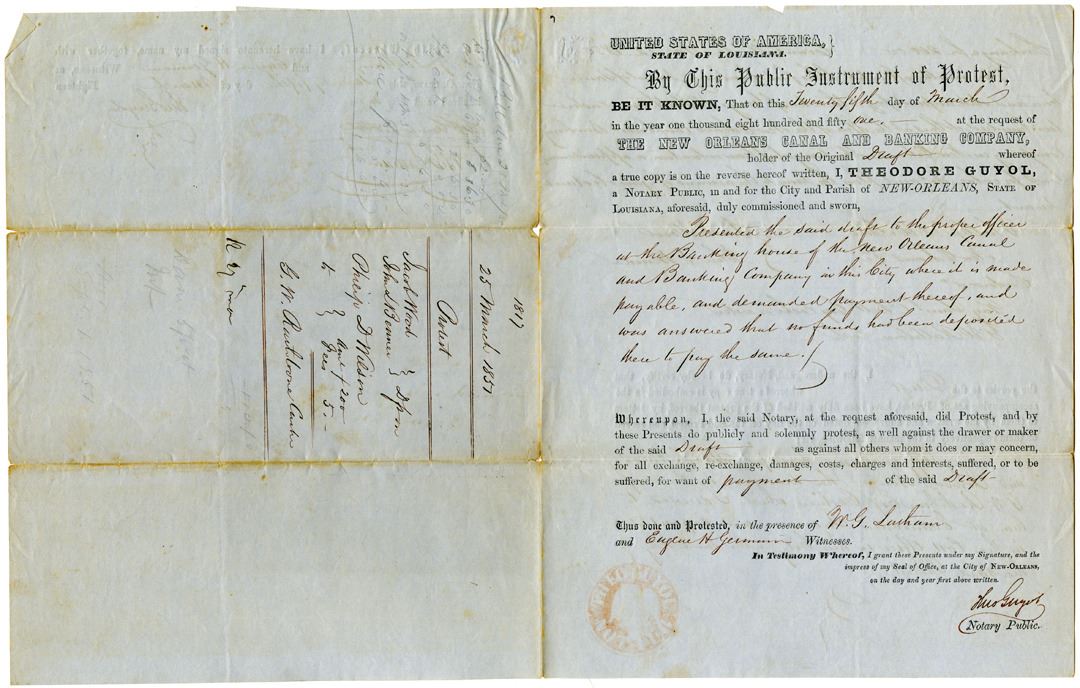 UNITED STATES OF AMERICA,
STATE OF LOUISIANA.
By This Public Instrument of Protest,
BE IT KNOWN, That on this Twenty fifth day of March
in the year one thousand eight hundred and fifty one. at the request of
THE NEW ORLEANS CANAL AND BANKING COMPANY,
holder of the Original Draft whereof
a true copy is on the reverse hereof written, I, THEODORE GUYOL,
a NOTARY PUBLIC, in and for the City and Parish of NEW-ORLEANS, STATE OF
LOUISIANA, aforesaid, duly commissioned and sworn,
Presented the said draft to the proper officer
at the Banking house of the New Orleans Canal
and Banking Company in this City where it is made
payable, and demanded payment thereof, and
was answered that no funds had been deposited
there to pay the same.
Whereupon, I, the said Notary, at the request aforesaid, did Protest, and by
these Presents do publicly and solemnly protest, as well against the drawer or maker
of the said Draft as against all others whom it does or may concern,
for all exchange, re-exchange, damages, costs, charges and interests, suffered, or to be
suffered, for want of payment of the said Draft
Thus done and Protested, in the presence of W. G. Latham
and Eugene H Germann Witnesses.
In Testimony Whereof, I grant these Presents under my Signature, and the
impress of my Seal of Office, at the City of NEW-ORLEANS,
on the day and year first above written.
Theo Guyol
Notary Public.
1817
25 March 1851
Protest
Jacob Wood
John S Benner } Dft on
Philip D Wilson
to } Amt $ 200
Fees 5.-
G. W.